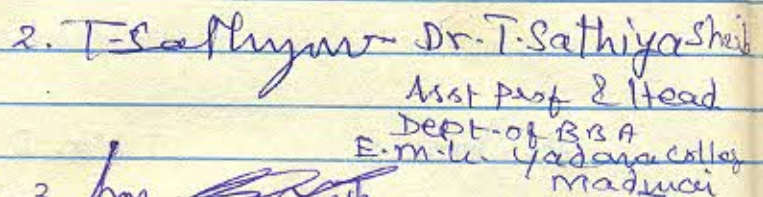 2. T. Sathiya Dr. T. Sathiya Sheib
Asst Prof & Head
Dept. of BBA
E.M.G. Yadava Colleg
Madurai
3.